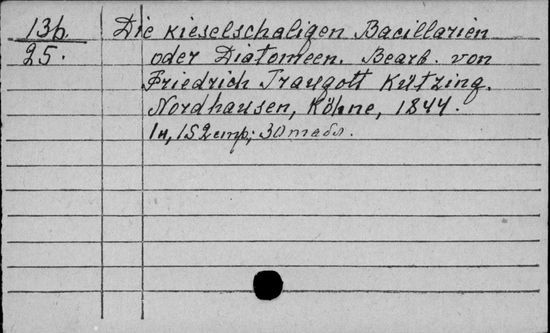 13b
25.
Die kieselschaligen Bacillarien
oder Diatomeen. Bearb. von
Friedrich Traugott Kützing.
Nordhausen, Köhne, 1844.
152 стр; 30 табл.